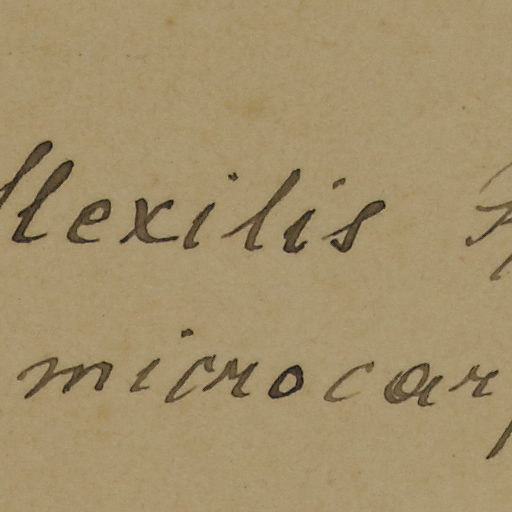 flexilis
microcarp